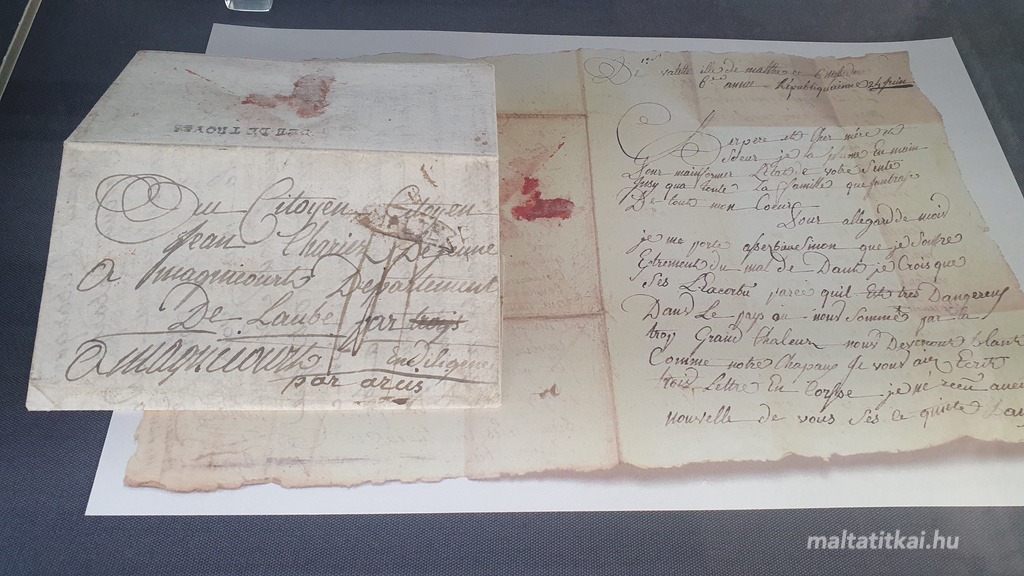 DEB. DE TROYES
Au Citoyen Citoyen
Jean Charier Dejeune
a magnicourt Departement
De Laube par trois
a magnicourt En diligence
par arcis
De valete ille de malthe ce
6 anné Republiquainne 24
Cher pere et Cher mere et
Soeur je la plume En main
pour mainformer Letat de votre Sente
Jusy qua toute la famille que
De tout mon Coeur
Pour allegard de moy
je me porte sinon que je Soufre
du mal de Dant je Crois que
Ses parce quil Est tres Dangereu
Dans Le pay ou nous Somme par la
troy Grand Chaleur nous Devenont blanc
Comme notre Chapaux Je vous ay Ecrit
trois Lettre En je né recu aucu
nouvelle de vous Ses ce
maltatitkai.hu